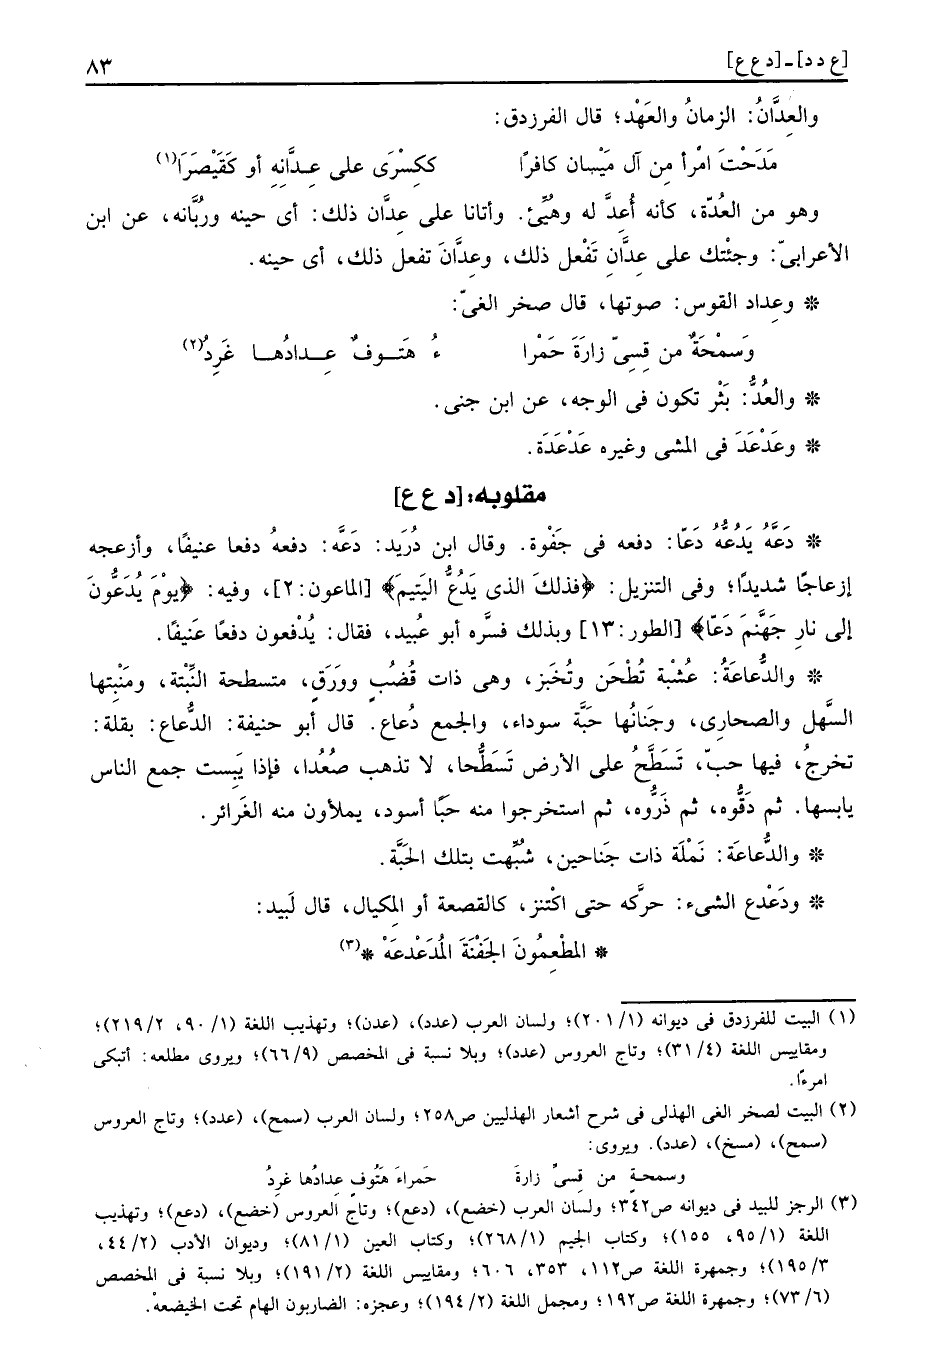 [ع د د] ـ [د ع ع] ٨٣
والعِدَّانُ: الزمانُ والعَهْد؛ قال الفرزدق:
مَدَحْتَ امْرأ مِن آل مَيْسان كافرًا ككِسْرَى على عِـدَّانِهِ أو كَقَيْصَرَا(١)
وهو من العُدّة، كأنه أُعِدَّ له وهُيِّئ. وأتانا على عِدَّان ذلك: أى حينه ورُبَّانه، عن ابن
الأعرابىّ: وجئتك على عِدَّانِ تَفْعل ذلك، وعِدَّانَ تفعل ذلك، أى حينه.
* وعِداد القوس: صوتها، قال صخر الغىّ:
وَسَمْحَةٌ من قِسِىّ زارَةَ حَمْرا ءُ هَتَــوفٌ عِــدادُهــا غَرِدُ(٢)
* والعُدُّ: بَثْر تكون فى الوجه، عن ابن جنى.
* وعَدْعَدَ فى المشى وغيره عَدْعَدَة.
مقلوبه: [د ع ع]
* دَعَّهُ يَدُعُّهُ دَعّا: دفعه فى جَفْوة. وقال ابن دُرَيد: دَعَّه: دفعهُ دفعا عنيفًا، وأزعجه
إزعاجًا شديدًا؛ وفى التنزيل: ﴿فذلكَ الذى يَدُعُّ اليَتيمَ﴾ [الماعون:٢]، وفيه: ﴿يومْ يُدَعُّونَ
إلى نارِ جَهَّنمَ دَعّا﴾ [الطور:١٣] وبذلك فسَّره أبو عُبيد، فقال: يُدْفعون دفعًا عَنيفًا.
* والدُّعاعَةُ: عُشْبة تُطْحَن وتُخبَز، وهى ذات قُضُبٍ ووَرَقٍ، متسطحة النِّبْتة، ومَنْبتها
السَّهل والصحارِى، وجَنَانُها حَبَّة سوداء، والجمع دُعاع. قال أبو حنيفة: الدُّعاع: بقلة:
تخرجُ، فيها حبّ، تَسَطَّحُ على الأرض تَسَطُّحا، لا تذهب صُعُدا، فإذا يَبِست جمع الناس
يابسها. ثم دَقُّوه، ثم ذَروُّه، ثم استخرجوا منه حَبًا أسود، يملأون منه الغَرائر.
* والدُّعاعَة: نَملَة ذات جَناحين، شُبِّهت بتلك الحَبَّة.
* ودَعْدع الشىء: حرَّكه حتى اكْتنز، كالقصعة أو المِكيال، قال لَبيد:
* المطْعِمُونَ الجَفْنَةَ المُدَعْدعَهْ *(٣)
(١) البيت للفرزدق فى ديوانه (٢٠١/١)؛ ولسان العرب (عدد)، (عدن)؛ وتهذيب اللغة (٩٠/١، ٢١٩/٢)؛
ومقاييس اللغة (٣١/٤)؛ وتاج العروس (عدد)؛ وبلا نسبة فى المخصص (٦٦/٩)؛ ويروى مطلعه: أتبكى
امرءًا.
(٢) البيت لصخر الغى الهذلى فى شرح أشعار الهذليين ص٢٥٨؛ ولسان العرب (سمح)، (عدد)؛ وتاج العروس
(سمح)، (مسخ)، (عدد). ويروى:
وسمحةٍ من قِسىِّ زارةَ حَمراءَ هَتُوفٍ عدادُها غردُ
(٣) الرجز للبيد فى ديوانه ص٣٤٢؛ ولسان العرب (خضع)، (دعع)؛ وتاج العروس (خضع)، (دعع)؛ وتهذيب
اللغة (٩٥/١، ١٥٥)؛ وكتاب الجيم (٢٦٨/١)؛ وكتاب العين (٨١/١)؛ وديوان الأدب (٤٤/٢،
١٩٥/٣)؛ وجمهرة اللغة ص١١٢، ٣٥٣، ٦٠٦؛ ومقاييس اللغة (١٩١/٢)؛ وبلا نسبة فى المخصص
(٧٣/٦)؛ وجمهرة اللغة ص١٩٢؛ ومجمل اللغة (١٩٤/٢)؛ وعجزه: الضاربون الهام تحت الخيضعهْ.